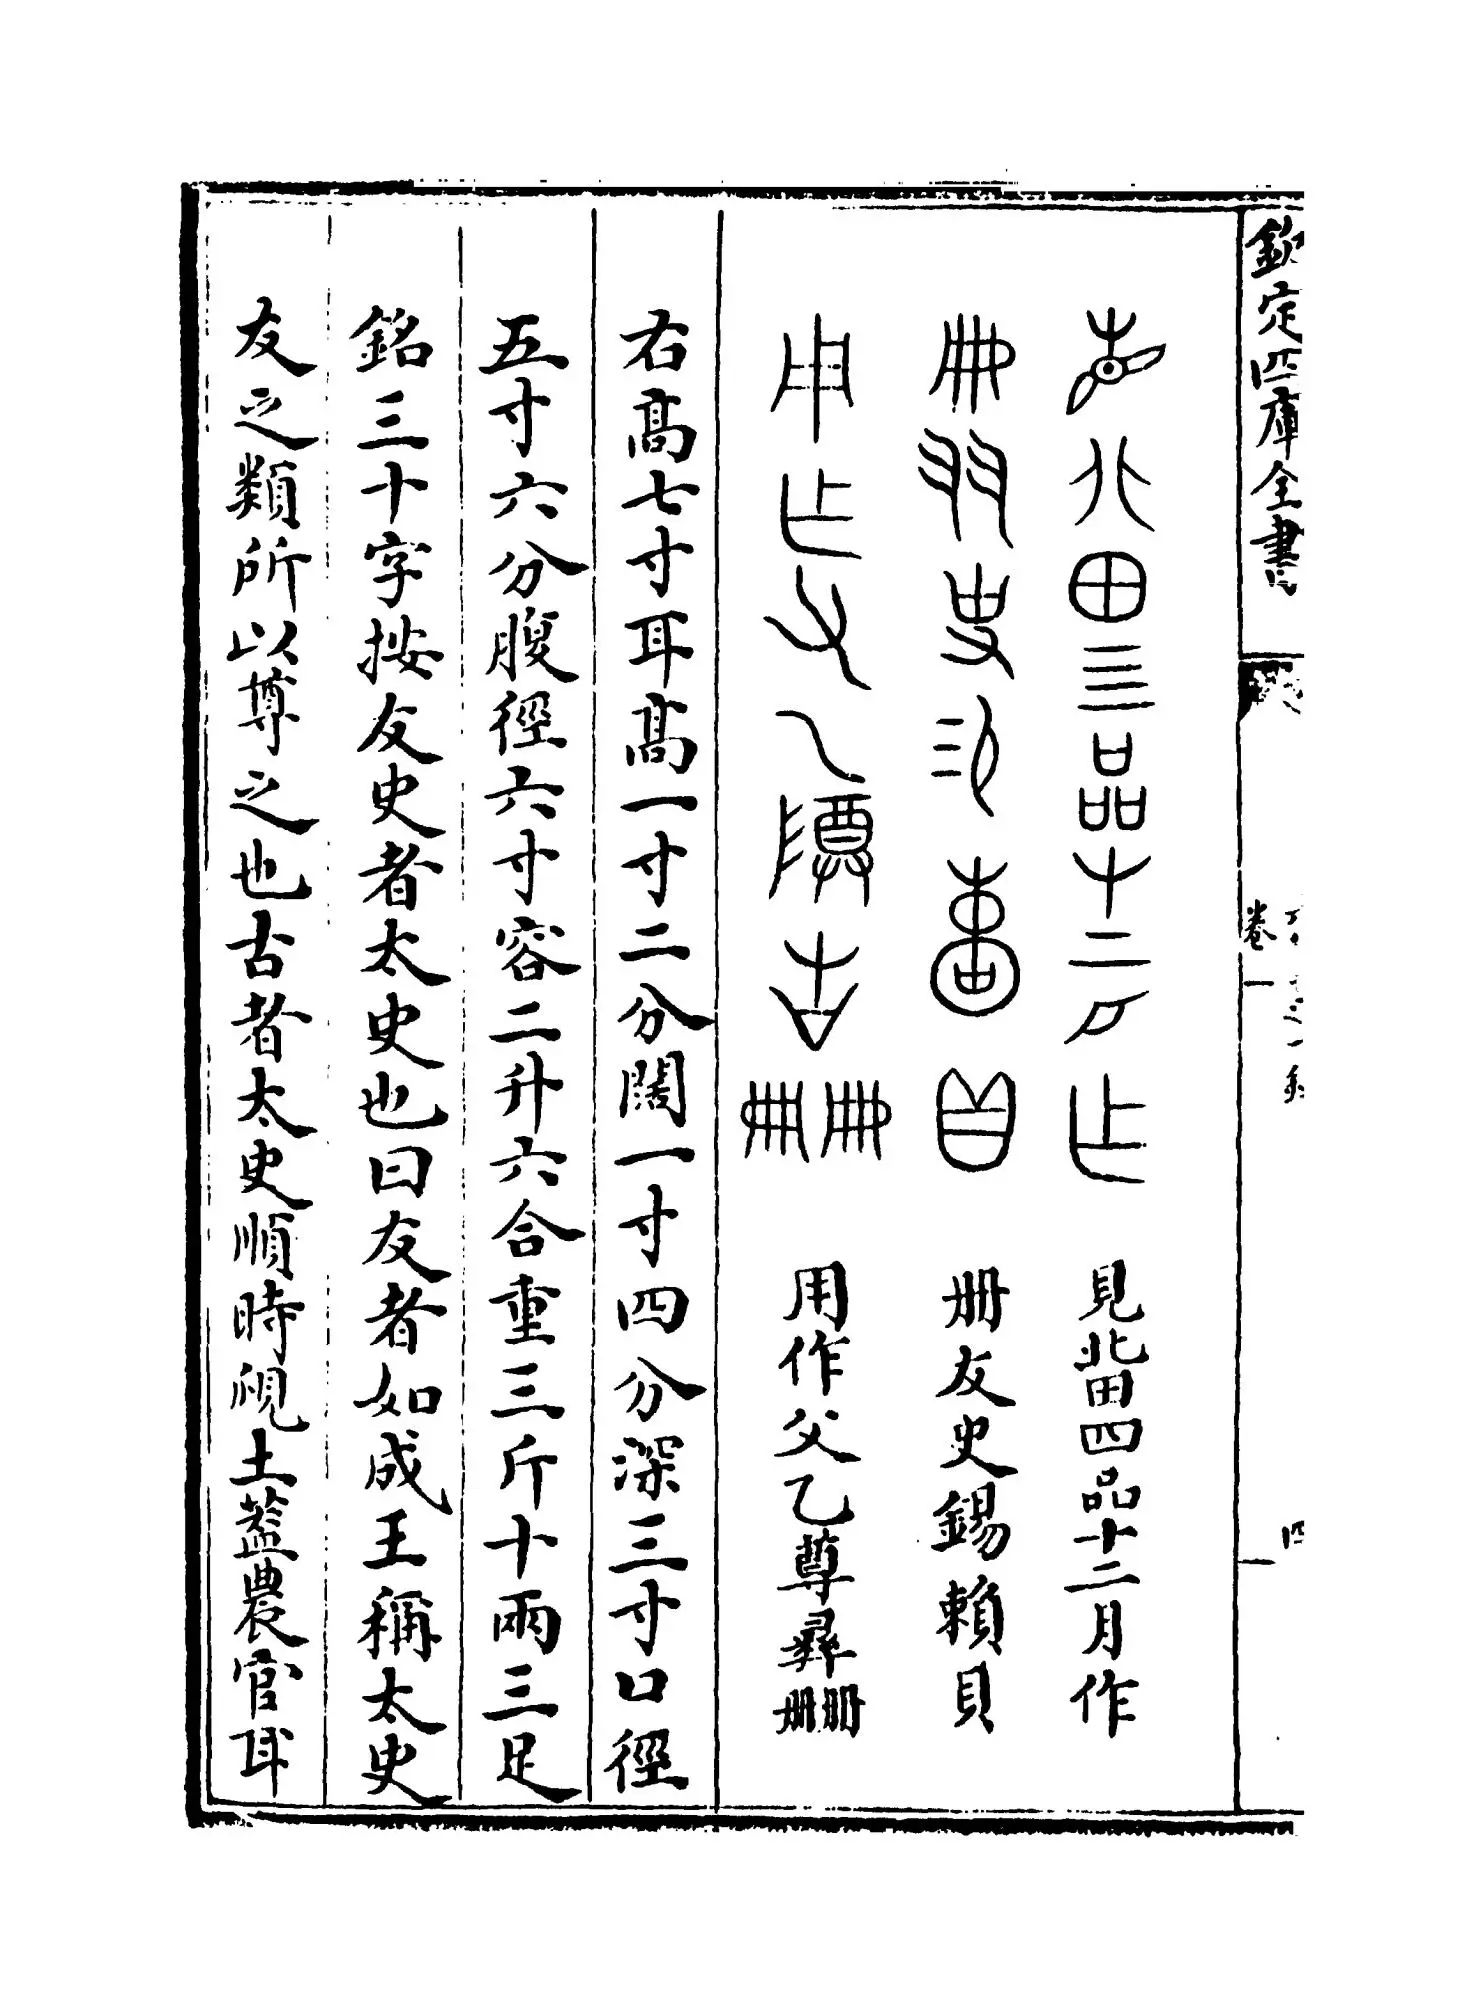 欽定四庫全書
卷一
四
見北田四品十二月作
冊友史錫賴貝
用作父乙尊彝冊冊
右高七寸耳高一寸二分闊一寸四分深三寸口徑
五寸六分腹徑六寸容二升六合重三斤十兩三足
銘三十字按友史者太史也曰友者如成王稱太史
友之類所以尊之也古者太史順時覛土葢農官耳